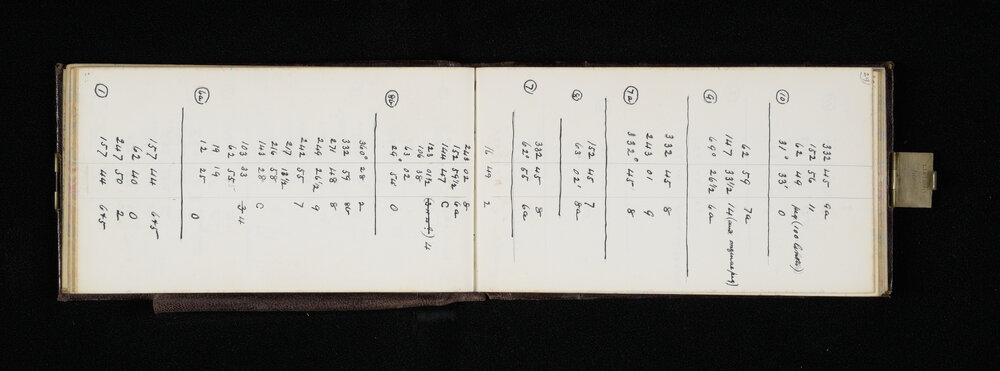 29
332 45 9a
152 56 11
62 49 peg (100 links)
⑩ 31° 33' 0
62 59 7a
147 33½ 14 (and original peg)
⑨ 69° 26½ 6a
332 45 8
243 01 9
(7a) 332° 45 8
152 45 7
⑧ 63° 02' 8a
332 45 8
⑦ 62° 55 6a
16 49 2
243 02 8
152 59½ 6a
144 47 C
123 01½ 4
106 38
63 02
(8b) 29° 54 0
360° 28 2
332 59 8b
271 48 8
249 26½ 9
242 55 7
217 13½
216 58
143 28 C
103 33 3 4
62 55
19 19
(6a) 12 25 0
157 44 6+5
62 40 0
247 50 2
① 157 44 6+5